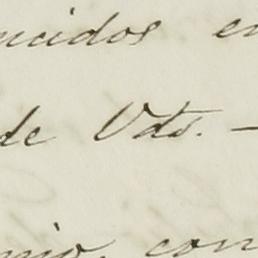 ucidos en
de Vds. —
nio, con